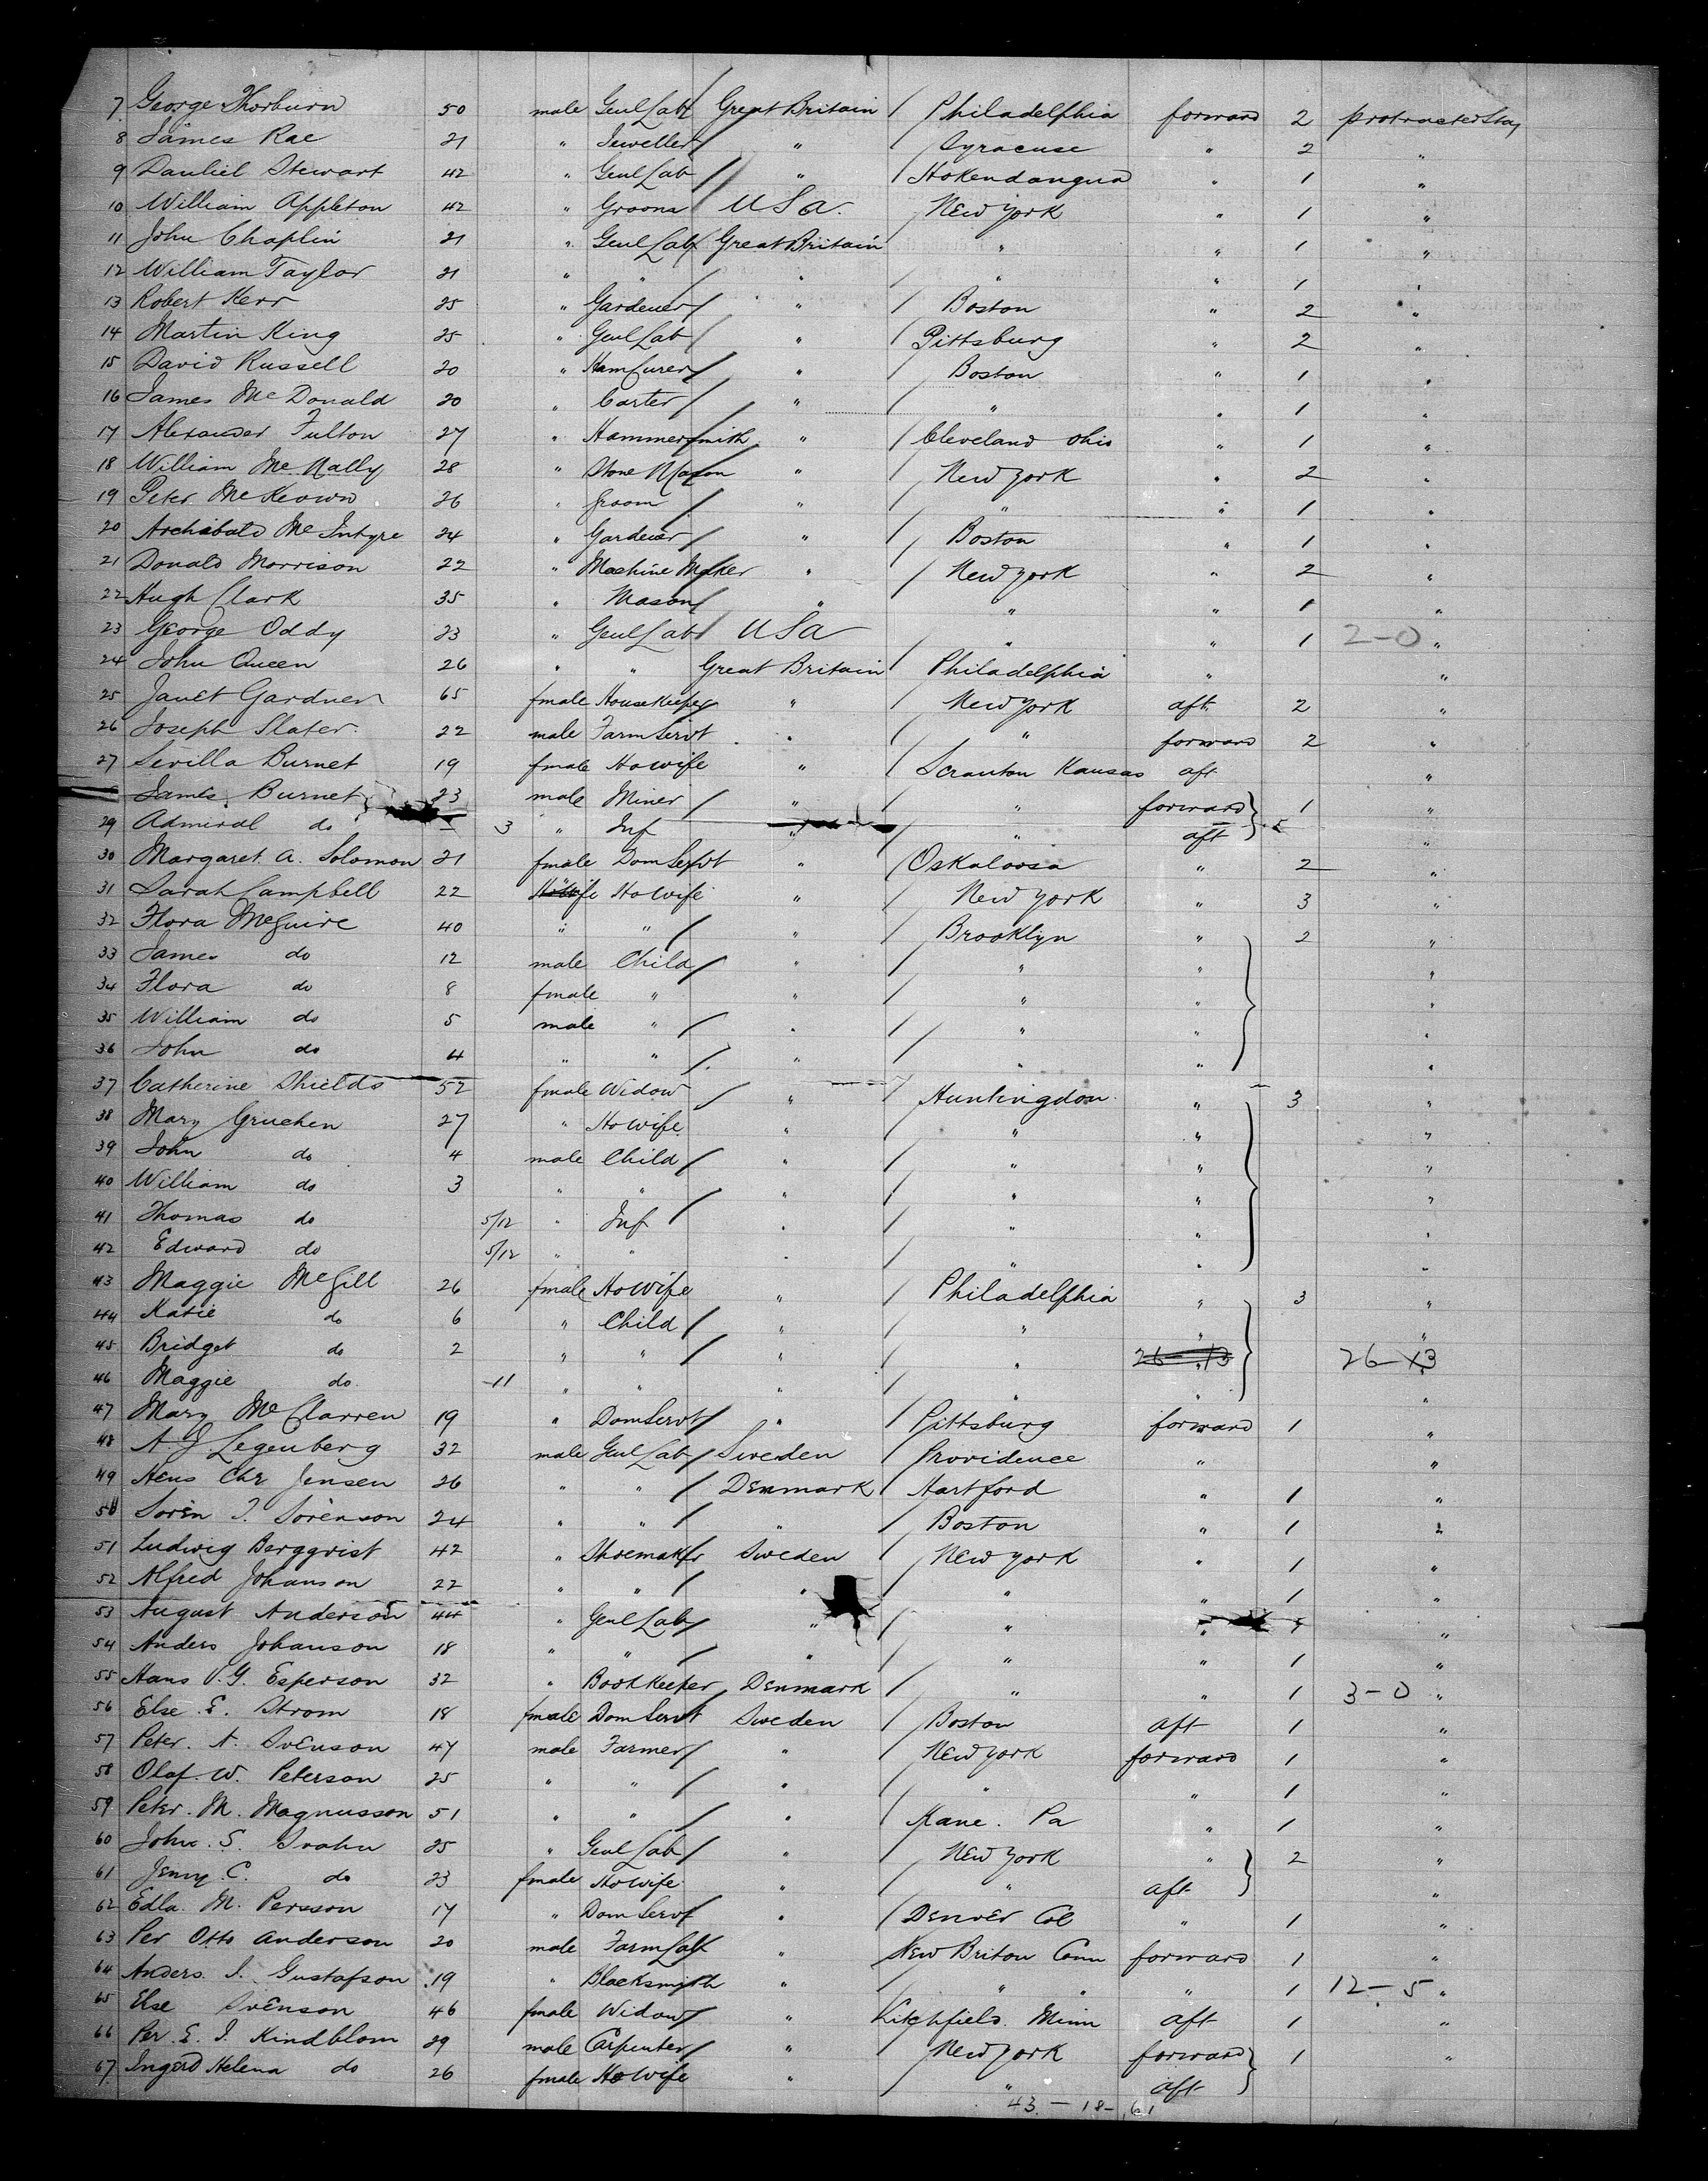 7 George Thorburn 50 male Genl Lab Great Britain Philadelphia forward 2 protracted Stay
8 James Rae 21 " Jeweller " Syracuse " 2 "
9 Dauliel Stewart 42 " Genl Lab " Hokendangua " 1 "
10 William Appleton 42 " Groom USa. New York " 1 "
11 John Chaplin 21 " Genl Lab Great Britain " " 1 "
12 William Taylor 21 " " " " " 1 "
13 Robert Kerr 25 " Gardener " Boston " 2 "
14 Martin King 25 " Genl Lab " Pittsburg " 2 "
15 David Russell 20 " Ham Curer " Boston " 1 "
16 James McDonald 20 " Carter " " " 1 "
17 Alexander Fulton 27 " Hammersmith " Cleveland Ohio " 1 "
18 William McNally 28 " Stone Mason " New York " 2 "
19 Peter McKeown 26 " Groom " " " 1 "
20 Archibald McIntyre 24 " Gardener " Boston " 1 "
21 Donald Morrison 22 " Machine Maker " New York " 2 "
22 Hugh Clark 35 " Mason " " " 1 "
23 George Oddy 23 " Genl Lab USa " " 1 2-0 "
24 John Queen 26 " " Great Britain Philadelphia " "
25 Janet Gardner 65 fmale Housekeeper " New York aft. 2 "
26 Joseph Slater. 22 male Farm Servt " " forward 2 "
27 Sevilla Burnet 19 fmale Ho wife " Scranton Kansas aft "
James Burnet 23 male Miner " " forward 1 "
29 Admiral do 3 " Inf " " aft "
30 Margaret A. Solomon 21 fmale Dom Servt " Oskaloosa " 2 "
31 Sarah Campbell 22 Ho wife " New York " 3 "
32 Flora McGuire 40 " " " Brooklyn " 2 "
33 James do 12 male Child " " " "
34 Flora do 8 fmale " " " " "
35 William do 5 male " " " " "
36 John do 4 " " " " " "
37 Catherine Shields 52 fmale Widow " Huntingdon " 3 "
38 Mary Gruchen 27 " Ho wife " " " "
39 John do 4 male Child " " " "
40 William do 3 " " " " " "
41 Thomas do 5/12 " Inf " " " "
42 Edward do 5/12 " " " " " "
43 Maggie McGill 26 fmale Ho wife " Philadelphia " 3 "
44 Katie do 6 " Child " " " "
45 Bridget do 2 " " " " 26-13 26-13
46 Maggie do. -11 " " " " " "
47 Mary McClarren 19 " Dom Servt " Pittsburg forward 1 "
48 A. J. Legenberg 32 male Genl Lab Sweden Providence " "
49 Hens Chr Jensen 26 " " Denmark Hartford " 1 "
50 Sorèn J. Sorènson 24 " " " Boston " 1 "
51 Ludwig Bergqvist 42 " Shoemaker Sweden New York " 1 "
52 Alfred Johanson 22 " " " " " 1 "
53 August Anderson 44 " Genl Lab " " " "
54 Anders Johanson 18 " " " " " 1 "
55 Hans V. G. Esperson 32 " Bookkeeper Denmark " " 1 3-0 "
56 Else E. Strom 18 fmale Dom Servt Sweden Boston aft 1 "
57 Peter. A. Svenson 47 male Farmer " New York forward 1 "
58 Olof. W. Peterson 25 " " " " " 1 "
59 Peter. M. Magnusson 51 " " " Kane. Pa " 1 "
60 John. S. Svahn 25 " Genl Lab " New York " 2 "
61 Jenny C. do 23 fmale Ho wife " " aft "
62 Edla. M. Persson 17 " Dom Servt " Denver Col " 1 "
63 Per Otto Anderson 20 male Farm Lab " New Briton Conn forward 1 "
64 Anders. J. Gustafson 19 " Blacksmith " " " " 1 12-5 "
65 Else Svenson 46 fmale Widow " Litchfield. Minn aft 1 "
66 Per. E. J. Kindblom 29 male Carpenter " New York forward 1 "
67 Ingerd Helena do 26 fmale Ho wife " " aft
43.-18-61